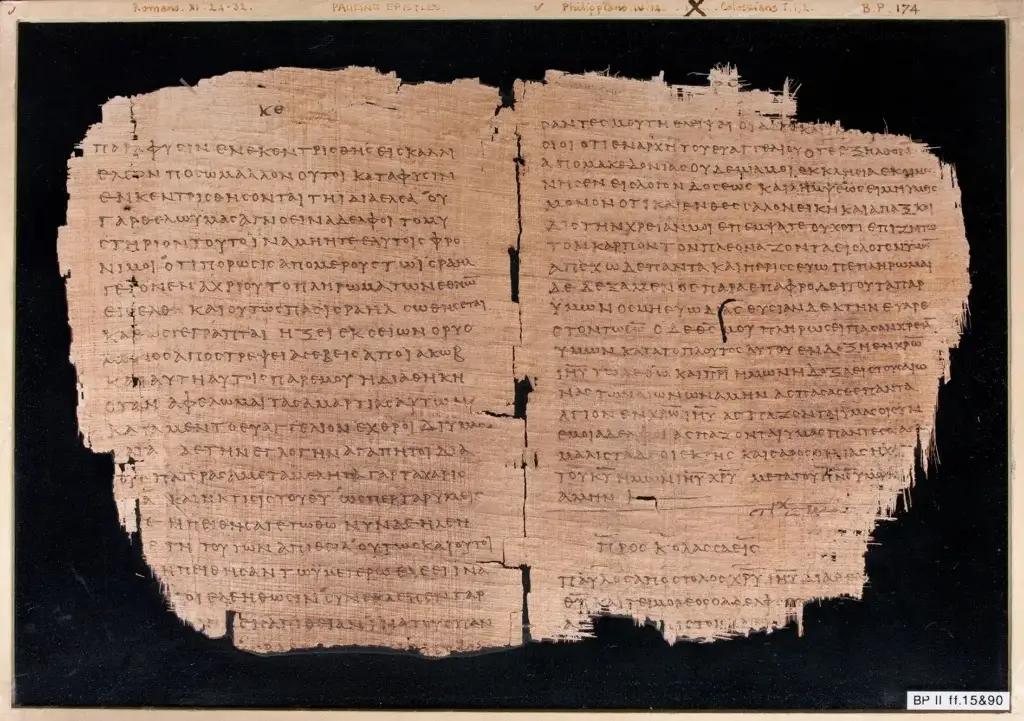 Romans. XI. 24-32.
PAULINE EPISTLES.
Philippians. IV. 14.
X
Colossians I. 1, 2.
B.P. 174
ΚΕ
ΠΑΡΑ ΦΥΣΙΝ ΕΝΕΚΕΝΤΡΙΣΘΗΣ ΕΙΣ ΚΑΛΛΙ
ΕΛΕΟΝ ΠΟΣΩ ΜΑΛΛΟΝ ΟΥΤΟΙ ΚΑΤΑ ΦΥΣΙΝ
ΕΝΚΕΝΤΡΙΣΘΗΣΟΝΤΑΙ ΤΗ ΙΔΙΑ ΕΛΑΙΑ ΟΥ
ΓΑΡ ΘΕΛΩ ΥΜΑΣ ΑΓΝΟΕΙΝ ΑΔΕΛΦΟΙ ΤΟ ΜΥ
ΣΤΗΡΙΟΝ ΤΟΥΤΟ ΙΝΑ ΜΗ ΗΤΕ ΕΑΥΤΟΙΣ ΦΡΟ
ΝΙΜΟΙ ΟΤΙ ΠΩΡΩΣΙΣ ΑΠΟ ΜΕΡΟΥΣ ΤΩ ΙΣΡΑΗΛ
ΓΕΓΟΝΕΝ ΑΧΡΙ ΟΥ ΤΟ ΠΛΗΡΩΜΑ ΤΩΝ ΕΘΝΩΝ
ΕΙΣΕΛΘΗ ΚΑΙ ΟΥΤΩΣ ΠΑΣ ΙΣΡΑΗΛ ΣΩΘΗΣΕΤΑΙ
ΚΑΘΩΣ ΓΕΓΡΑΠΤΑΙ ΗΞΕΙ ΕΚ ΣΕΙΩΝ Ο ΡΥΟ
ΜΕΝΟΣ ΑΠΟΣΤΡΕΨΕΙ ΑΣΕΒΕΙΣ ΑΠΟ ΙΑΚΩΒ
ΚΑΙ ΑΥΤΗ ΑΥΤΟΙΣ ΠΑΡ ΕΜΟΥ Η ΔΙΑΘΗΚΗ
ΟΤΑΝ ΑΦΕΛΩΜΑΙ ΤΑΣ ΑΜΑΡΤΙΑΣ ΑΥΤΩΝ
ΚΑΤΑ ΜΕΝ ΤΟ ΕΥΑΓΓΕΛΙΟΝ ΕΧΘΡΟΙ ΔΙ ΥΜΑΣ
ΚΑΤΑ ΔΕ ΤΗΝ ΕΓΛΟΓΗΝ ΑΓΑΠΗΤΟΙ ΔΙΑ
ΤΟΥΣ ΠΑΤΕΡΑΣ ΑΜΕΤΑΜΕΛΗΤΑ ΓΑΡ ΤΑ ΧΑΡΙΣ
ΚΑΙ Η ΚΤΙΣΙΣ ΤΟΥ ΘΥ ΩΣΠΕΡ ΓΑΡ ΥΜΕΙΣ
ΗΠΕΙΘΗΣΑΤΕ ΤΩ ΘΩ ΝΥΝ ΔΕ ΗΛΕΗ
ΤΗ ΤΟΥΤΩΝ ΑΠΙΘΕΙΑ ΟΥΤΩΣ ΚΑΙ ΟΥΤΟΙ
ΗΠΕΙΘΗΣΑΝ ΤΩ ΥΜΕΤΕΡΩ ΕΛΕΕΙ ΙΝΑ
ΟΙ ΕΛΕΗΘΩΣΙΝ ΣΥΝΕΚΛΕΙΣΕΝ ΓΑΡ
ΕΙΣ ΑΠΙΘΕΙΑΝ ΙΝΑ ΤΟΥΣ ΠΑΝ
ΣΑΝΤΕΣ ΜΟΥ ΤΗ ΘΛΕΙΨΕΙ ΟΙΔΑΤΕ
ΣΙΟΙ ΟΤΙ ΕΝ ΑΡΧΗ ΤΟΥ ΕΥΑΓΓΕΛΙΟΥ ΟΤΕ ΕΞΗΛΘΟΝ
ΑΠΟ ΜΑΚΕΔΟΝΙΑΣ ΟΥΔΕΜΙΑ ΜΟΙ ΕΚΚΛΗΣΙΑ ΕΚΟΙΝΩ
ΝΗΣΕΝ ΕΙΣ ΛΟΓΟΝ ΔΟΣΕΩΣ ΚΑΙ ΛΗΜΨΕΩΣ ΕΙ ΜΗ ΥΜΕΙΣ
ΜΟΝΟΝ ΟΤΙ ΚΑΙ ΕΝ ΘΕΣΣΑΛΟΝΕΙΚΗ ΚΑΙ ΑΠΑΞ ΚΑΙ
ΔΙΣ ΤΗΝ ΧΡΕΙΑΝ ΜΟΙ ΕΠΕΜΨΑΤΕ ΟΥΧ ΟΤΙ ΕΠΙΖΗΤΩ
ΤΟΝ ΚΑΡΠΟΝ ΤΟΝ ΠΛΕΟΝΑΖΟΝΤΑ ΕΙΣ ΛΟΓΟΝ ΥΜΩΝ
ΑΠΕΧΩ ΔΕ ΠΑΝΤΑ ΚΑΙ ΠΕΡΙΣΣΕΥΩ ΠΕΠΛΗΡΩΜΑΙ
ΔΕ ΔΕΞΑΜΕΝΟΣ ΠΑΡΑ ΕΠΑΦΡΟΔΕΙΤΟΥ ΤΑ ΠΑΡ
ΥΜΩΝ ΟΣΜΗ ΕΥΩΔΙΑΣ ΘΥΣΙΑΝ ΔΕΚΤΗΝ ΕΥΑΡΕ
ΣΤΟΝ ΤΩ ΘΩ Ο ΔΕ ΘΣ ΜΟΥ ΠΛΗΡΩΣΕΙ ΠΑΣΑΝ ΧΡΕΙΑΝ
ΥΜΩΝ ΚΑΤΑ ΤΟ ΠΛΟΥΤΟΣ ΑΥΤΟΥ ΕΝ ΔΟΞΗ ΕΝ ΧΡΩ
ΙΗΥ ΤΩ ΔΕ ΘΩ ΚΑΙ ΠΡΙ ΗΜΩΝ Η ΔΟΞΑ ΕΙΣ ΤΟΥΣ ΑΙΩ
ΝΑΣ ΤΩΝ ΑΙΩΝΩΝ ΑΜΗΝ ΑΣΠΑΣΑΣΘΕ ΠΑΝΤΑ
ΑΓΙΟΝ ΕΝ ΧΡΩ ΙΗΥ ΑΣΠΑΖΟΝΤΑΙ ΥΜΑΣ ΟΙ ΣΥΝ
ΕΜΟΙ ΑΔΕΛΦΟΙ ΑΣΠΑΖΟΝΤΑΙ ΥΜΑΣ ΠΑΝΤΕΣ
ΜΑΛΙΣΤΑ ΔΕ ΟΙ ΕΚ ΤΗΣ ΚΑΙΣΑΡΟΣ ΟΙΚΙΑΣ Η ΧΑ
ΤΟΥ ΚΥ ΗΜΩΝ ΙΗΥ ΧΡΥ ΜΕΤΑ ΤΟΥ ΠΝΣ ΥΜΩΝ
ΑΜΗΝ
ΠΡΟΣ ΚΟΛΑΣΣΑΕΙΣ
ΠΑΥΛΟΣ ΑΠΟΣΤΟΛΟΣ ΧΡΥ ΙΗΥ ΔΙΑ ΘΕΛ
ΘΥ ΚΑΙ ΤΕΙΜΟΘΕΟΣ Ο ΑΔΕΛΦ
BP II ff.15&90